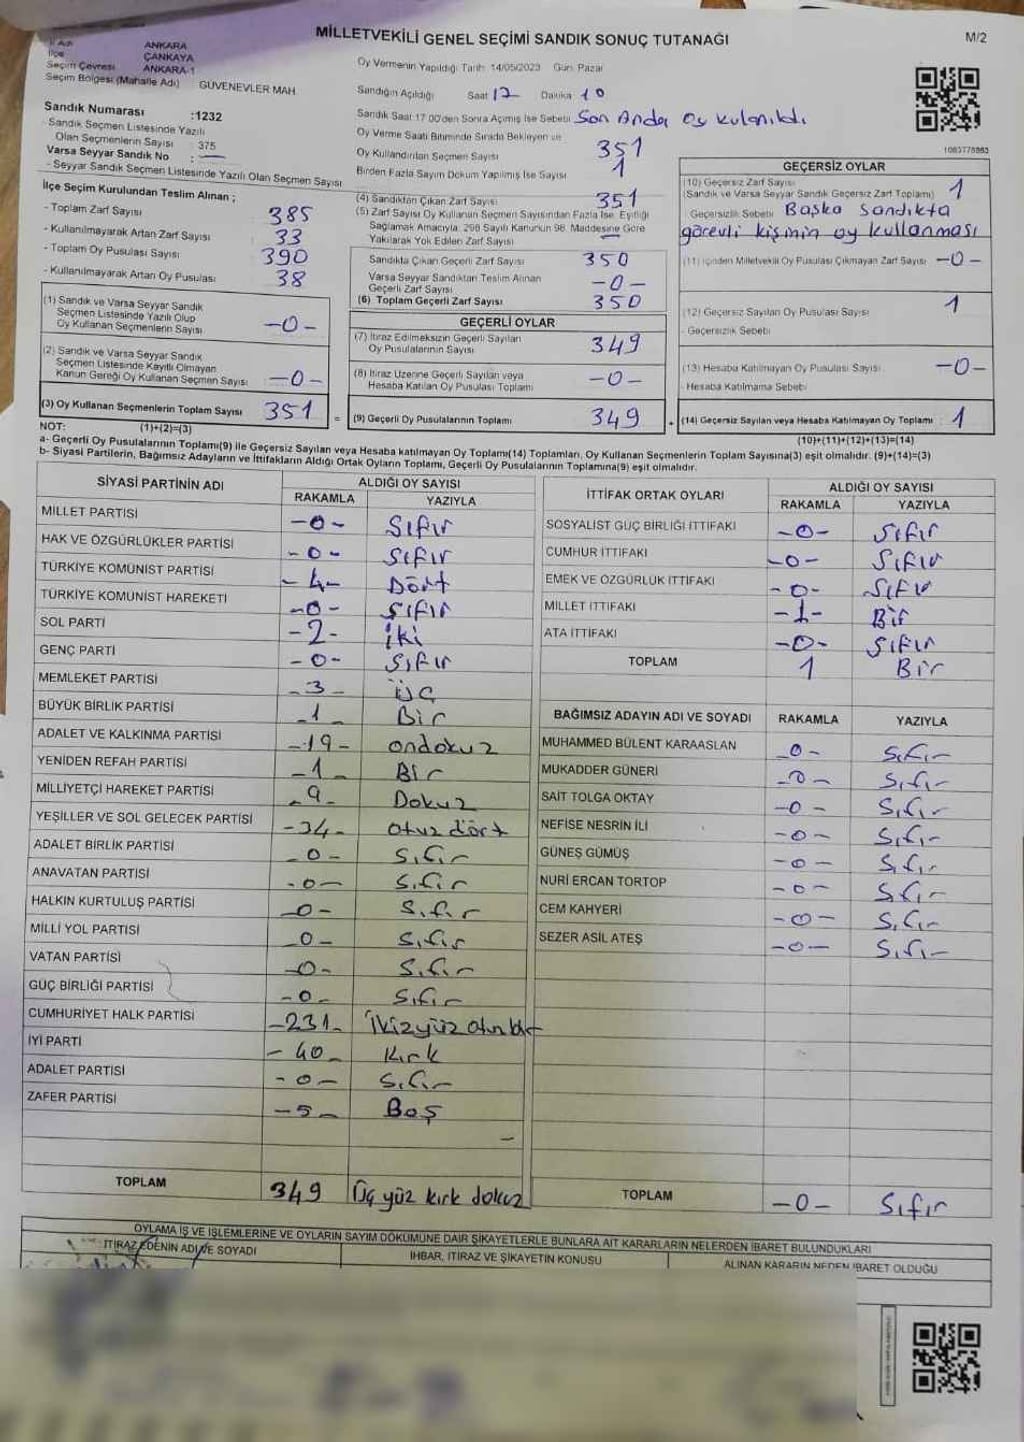 MİLLETVEKİLİ GENEL SEÇİMİ SANDIK SONUÇ TUTANAĞI
M/2
İl Adı ANKARA
İlçe ÇANKAYA
Seçim Çevresi ANKARA-1
Seçim Bölgesi (Mahalle Adı) GÜVENEVLER MAH.
Oy Vermenin Yapıldığı Tarih: 14/05/2023 Gün: Pazar
Sandığın Açıldığı Saat 17 Dakika 10
Sandık Saat 17.00'den Sonra Açılmış İse Sebebi Son Anda oy kulanıldı
Sandık Numarası :1232
- Sandık Seçmen Listesinde Yazılı
Olan Seçmenlerin Sayısı 375
Varsa Seyyar Sandık No : —
- Seyyar Sandık Seçmen Listesinde Yazılı Olan Seçmen Sayısı
Oy Verme Saati Bitiminde Sırada Bekleyen ve
Oy Kullandırılan Seçmen Sayısı 351
Birden Fazla Sayım Döküm Yapılmış İse Sayısı 1
1083778983
İlçe Seçim Kurulundan Teslim Alınan ;
- Toplam Zarf Sayısı 385
- Kullanılmayarak Artan Zarf Sayısı 33
- Toplam Oy Pusulası Sayısı 390
- Kullanılmayarak Artan Oy Pusulası 38
(1) Sandık ve Varsa Seyyar Sandık
Seçmen Listesinde Yazılı Olup
Oy Kullanan Seçmenlerin Sayısı -0-
(2) Sandık ve Varsa Seyyar Sandık
Seçmen Listesinde Kayıtlı Olmayan
Kanun Gereği Oy Kullanan Seçmen Sayısı -0-
(3) Oy Kullanan Seçmenlerin Toplam Sayısı 351 =
(4) Sandıktan Çıkan Zarf Sayısı 351
(5) Zarf Sayısı Oy Kullanan Seçmen Sayısından Fazla İse, Eşitliği
Sağlamak Amacıyla, 298 Sayılı Kanunun 98. Maddesine Göre
Yakılarak Yok Edilen Zarf Sayısı
Sandıkta Çıkan Geçerli Zarf Sayısı 350
Varsa Seyyar Sandıktan Teslim Alınan
Geçerli Zarf Sayısı -0-
(6) Toplam Geçerli Zarf Sayısı 350
GEÇERLİ OYLAR
(7) İtiraz Edilmeksizin Geçerli Sayılan
Oy Pusulalarının Sayısı 349
(8) İtiraz Üzerine Geçerli Sayılan veya
Hesaba Katılan Oy Pusulası Toplamı -0-
(9) Geçerli Oy Pusulalarının Toplamı 349 +
GEÇERSİZ OYLAR
(10) Geçersiz Zarf Sayısı
(Sandık ve Varsa Seyyar Sandık Geçersiz Zarf Toplamı) 1
- Geçersizlik Sebebi Başka sandıkta
görevli kişinin oy kullanması
(11) İçinden Milletvekili Oy Pusulası Çıkmayan Zarf Sayısı -0-
(12) Geçersiz Sayılan Oy Pusulası Sayısı 1
- Geçersizlik Sebebi
(13) Hesaba Katılmayan Oy Pusulası Sayısı -0-
- Hesaba Katılmama Sebebi
(14) Geçersiz Sayılan veya Hesaba Katılmayan Oy Toplamı 1
NOT: (1)+(2)=(3)
(10)+(11)+(12)+(13)=(14)
a- Geçerli Oy Pusulalarının Toplamı(9) ile Geçersiz Sayılan veya Hesaba katılmayan Oy Toplamı(14) Toplamları, Oy Kullanan Seçmenlerin Toplam Sayısına(3) eşit olmalıdır. (9)+(14)=(3)
b- Siyasi Partilerin, Bağımsız Adayların ve İttifakların Aldığı Ortak Oyların Toplamı, Geçerli Oy Pusulalarının Toplamına(9) eşit olmalıdır.
SİYASİ PARTİNİN ADI ALDIĞI OY SAYISI
RAKAMLA YAZIYLA
MİLLET PARTİSİ -0- Sıfır
HAK VE ÖZGÜRLÜKLER PARTİSİ -0- Sıfır
TÜRKİYE KOMÜNİST PARTİSİ -4- Dört
TÜRKİYE KOMÜNİST HAREKETİ -0- Sıfır
SOL PARTİ -2- iki
GENÇ PARTİ -0- Sıfır
MEMLEKET PARTİSİ -3- üç
BÜYÜK BİRLİK PARTİSİ -1- Bir
ADALET VE KALKINMA PARTİSİ -19- ondokuz
YENİDEN REFAH PARTİSİ -1- Bir
MİLLİYETÇİ HAREKET PARTİSİ -9- Dokuz
YEŞİLLER VE SOL GELECEK PARTİSİ -34- otuz dört
ADALET BİRLİK PARTİSİ -0- Sıfır
ANAVATAN PARTİSİ -0- Sıfır
HALKIN KURTULUŞ PARTİSİ -0- Sıfır
MİLLİ YOL PARTİSİ -0- Sıfır
VATAN PARTİSİ -0- Sıfır
GÜÇ BİRLİĞİ PARTİSİ -0- Sıfır
CUMHURİYET HALK PARTİSİ -231- İkiyüz otuzbir
İYİ PARTİ -40- Kırk
ADALET PARTİSİ -0- Sıfır
ZAFER PARTİSİ -5- Beş
TOPLAM 349 Üç yüz kırk dokuz
İTTİFAK ORTAK OYLARI ALDIĞI OY SAYISI
RAKAMLA YAZIYLA
SOSYALİST GÜÇ BİRLİĞİ İTTİFAKI -0- Sıfır
CUMHUR İTTİFAKI -0- Sıfır
EMEK VE ÖZGÜRLÜK İTTİFAKI -0- Sıfır
MİLLET İTTİFAKI -1- Bir
ATA İTTİFAKI -0- Sıfır
TOPLAM 1 Bir
BAĞIMSIZ ADAYIN ADI VE SOYADI RAKAMLA YAZIYLA
MUHAMMED BÜLENT KARAASLAN -0- Sıfır
MUKADDER GÜNERİ -0- Sıfır
SAİT TOLGA OKTAY -0- Sıfır
NEFİSE NESRİN İLİ -0- Sıfır
GÜNEŞ GÜMÜŞ -0- Sıfır
NURİ ERCAN TORTOP -0- Sıfır
CEM KAHYERİ -0- Sıfır
SEZER ASİL ATEŞ -0- Sıfır
TOPLAM -0- Sıfır
OYLAMA İŞ VE İŞLEMLERİNE VE OYLARIN SAYIM DÖKÜMÜNE DAİR ŞİKAYETLERLE BUNLARA AİT KARARLARIN NELERDEN İBARET BULUNDUKLARI
İTİRAZ EDENİN ADI VE SOYADI İHBAR, İTİRAZ VE ŞİKAYETİN KONUSU ALINAN KARARIN NEDEN İBARET OLDUĞU